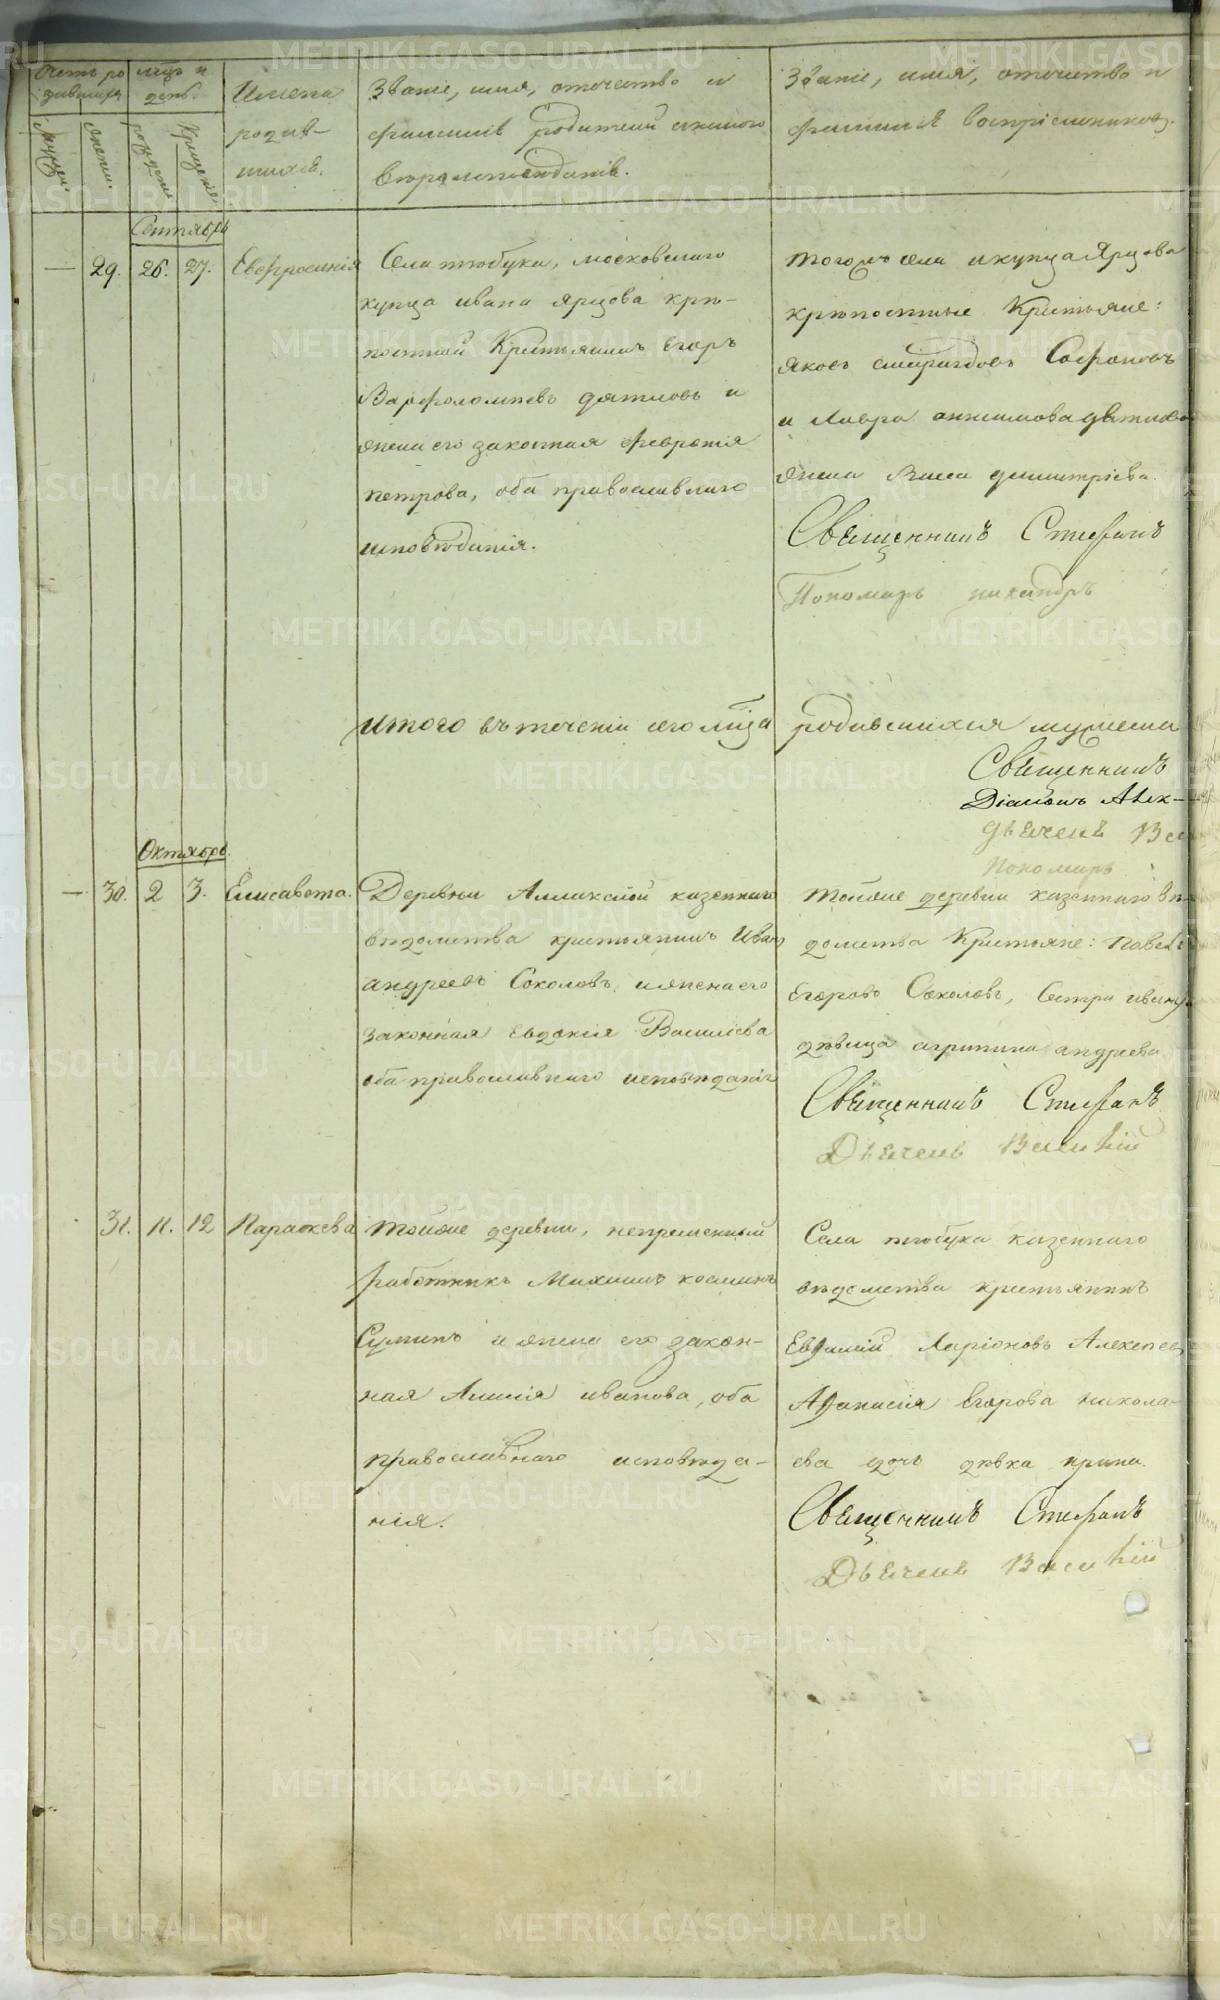 Счетъ ро мцъ и
дившихся день.
Имена
родив-
шихся.
Званіе, имя, отечество и
фамилія родителей и какого
вѣроисповѣданія.
Званіе, имя, отечество и
фамилія воспріемниковъ.
Мужеск. Женск. рожденія Крещенія
Сентябрь
— 29. 26. 27. Евфросинія
Села тюбука, московскаго
купца ивана Ярцова крѣ-
постной Крестьянинъ Егоръ
Варфоломѣевъ дятловъ и
жена его законная февронія
петрова, оба православнаго
исповѣданія.
тогожъ села и купца Ярцова
крѣпостные Крестьяне:
яковъ Софоновъ
и Лавра анисимова дятлова
жена Васса димитріева.
Священникъ Стефанъ
Пономарь никандръ
итого въ теченіи сего мца родившихся мужеска
Священникъ
Діаконъ Алек-
Дьячекъ Вас
Пономарь
Октябрь.
— 30. 2 3. Елисавета.
Деревни казеннаго
вѣдомства крестьянинъ Иванъ
андреевъ Соколовъ, и жена его
законная евдокія Василіева
оба православнаго исповѣданія
тойже деревни казеннаго вѣ-
домства Крестьяне: Павелъ
Егоровъ Соколовъ, Сестра ивану
дѣвица агрипина андреева
Священникъ Стефанъ
Дьячекъ Василій
31. 11. 12 Параскева
тойже деревни, непременный
работникъ Михаилъ косминъ
и жена его закон-
ная иванова, оба
православнаго исповѣда-
нія.
Села тюбука казеннаго
вѣдомства крестьянинъ
Евдимій Ларіоновъ Алексеев
Афанасія Егорова никола-
ева дочь дѣвка ирина.
Священникъ Стефанъ
Дьячекъ Василій
METRIKI.GASO-URAL.RU